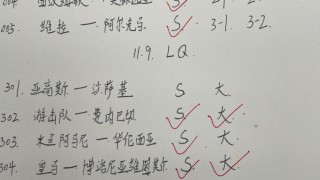 005. 维拉 — 阿尔克马 S 3-1. 3-2.
11.9. LQ.
301. 亚高斯 — 法萨基 S 大
302 游击队 — 曼内巴切 S 大
303. 米兰阿马尼 — 华伦西亚 S 大.
304. 皇马 — 博洛尼亚维图斯 S. 大